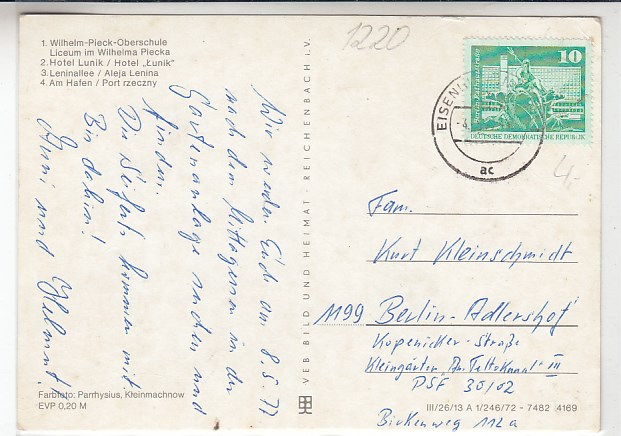 1. Wilhelm-Pieck-Oberschule
Liceum im Wilhelma Piecka
2. Hotel Lunik / Hotel „Łunik"
3. Leninallee / Aleja Lenina
4. Am Hafen / Port rzeczny
Wir werden Euch am 8.5.77
nach dem Mittagessen in der
Gartenanlage suchen und
finden.
Die Seiferts kommen mit.
Bis dahin!
Anni und Helmut.
Farbfoto: Parrhysius, Kleinmachnow
EVP 0,20 M
VEB BILD UND HEIMAT REICHENBACH i.V.
1220
10
DEUTSCHE DEMOKRATISCHE REPUBLIK
ac
4,-
Fam.
Kurt Kleinschmidt
1199 Berlin-Adlershof
Köpenicker-Straße
Kleingärten „Am Teltokanal" III
PSF 30/02
Birkenweg 112a
III/26/13 A 1/246/72 - 7482 4169